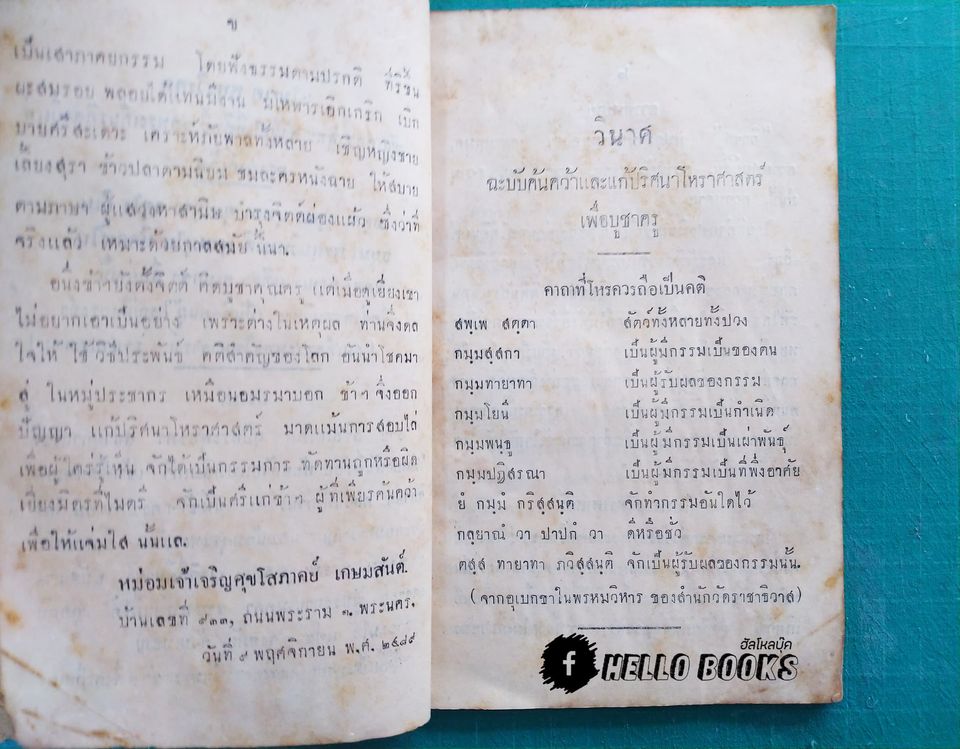 ข
เป็นเสาภาคยกรรม โดยฟังธรรมตามปรกติ ที่ริชื่น
ผะสมรอย พลอยได้แทนมีงาน มีไห้พารเอิกเกริก เบิก
บายศรีสะเดาะ เคราะห์ภัยพาลทั้งหลาย เชิญหญิงชาย
เลี้ยงสุรา ข้าวปลาตามนิยม ชมละครหนังฉาย ให้สบาย
ตามภาษา ผู้แสวงหาสานิษ บำรุงจิตต์ผ่องแผ้ว ซึ่งว่าที่
จริงแล้ว เหมาะด้วยกาลสมัย นี้นา.
อนึ่งข้าฯยังตั้งจิตต์ คิดบูชาคุณครู แต่เมื่อดูเยี่ยงเขา
ไม่อยากเอาเป็นอย่าง เพราะต่างในเหตุผล ท่านจึงดล
ใจให้ ใช้วิธีประพันธ์ คติสำคัญของโลก อันนำโชคมา
สู่ ในหมู่ประชากร เหมือนอมรมาบอก ข้าฯ จึ่งออก
ปัญญา แก้ปริศนาโหราศาสตร์ มาดแม้นการสอบไล่
เพื่อผู้ใคร่รู้เห็น จักได้เป็นกรรมการ ทัดทานถูกหรือผิด
เยี่ยงมิตรที่ไมตรี จักเป็นศรีแก่ข้าฯ ผู้ที่เพียรค้นคว้า
เพื่อให้แจ่มใส นั้นแล.
หม่อมเจ้าเจริญศุขโสภาคย์ เกษมสันต์.
บ้านเลขที่ ๙๓๓, ถนนพระราม ๑ พระนคร,
วันที่ ๙ พฤศจิกายน พ.ศ. ๒๔๘๙
วินาศ
ฉะบับค้นคว้าและแก้ปริศนาโหราศาสตร์
เพื่อบูชาครู
คาถาที่โหรควรถือเป็นคติ
สพฺเพ สตฺตา สัตว์ทั้งหลายทั้งปวง
กมฺมสฺสกา เป็นผู้มีกรรมเป็นของตน
กมฺมทายาทา เป็นผู้รับผลของกรรม
กมฺมโยนี เป็นผู้มีกรรมเป็นกำเนิด
กมฺมพนฺธู เป็นผู้มีกรรมเป็นเผ่าพันธุ์
กมฺมปฏิสรณา เป็นผู้มีกรรมเป็นที่พึ่งอาศัย
ยํ กมฺมํ กริสฺสนฺติ จักทำกรรมอันใดไว้
กลฺยาณํ วา ปาปกํ วา ดีหรือชั่ว
ตสฺส ทายาทา ภวิสฺสนฺติ จักเป็นผู้รับผลของกรรมนั้น.
(จากอุเบกขาในพรหมวิหาร ของสำนักวัดราชาธิวาส)
ฮัลโหลบุ๊ค
f HELLO BOOKS